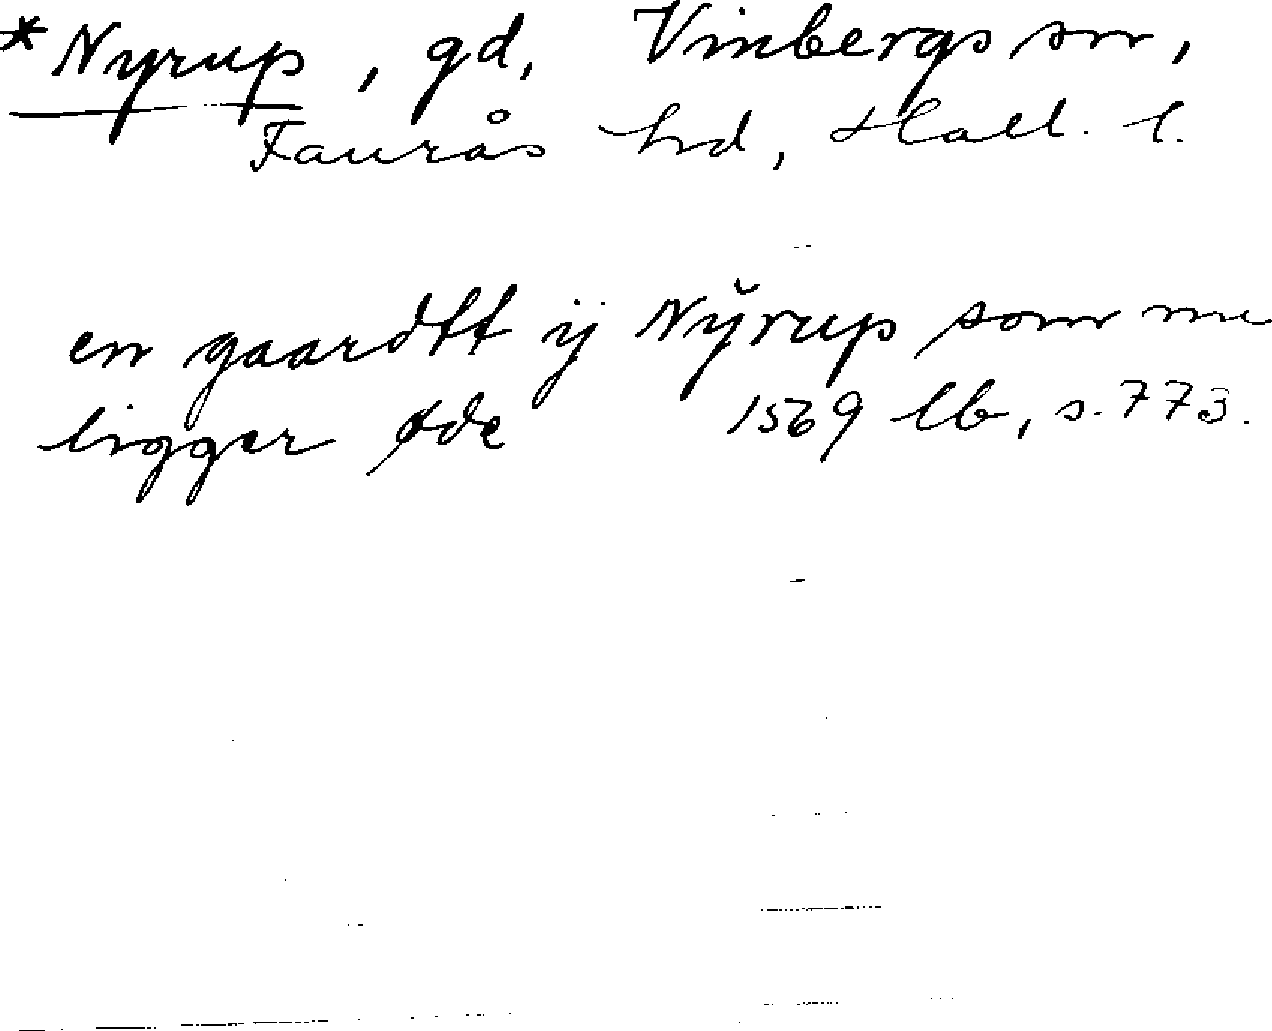 *Nyrup, gd, Vinbergs sn,
Faurås hd, Hall. l.
en gaardtt ij Nÿrup som nu
ligger øde 1569 lb, s. 773.